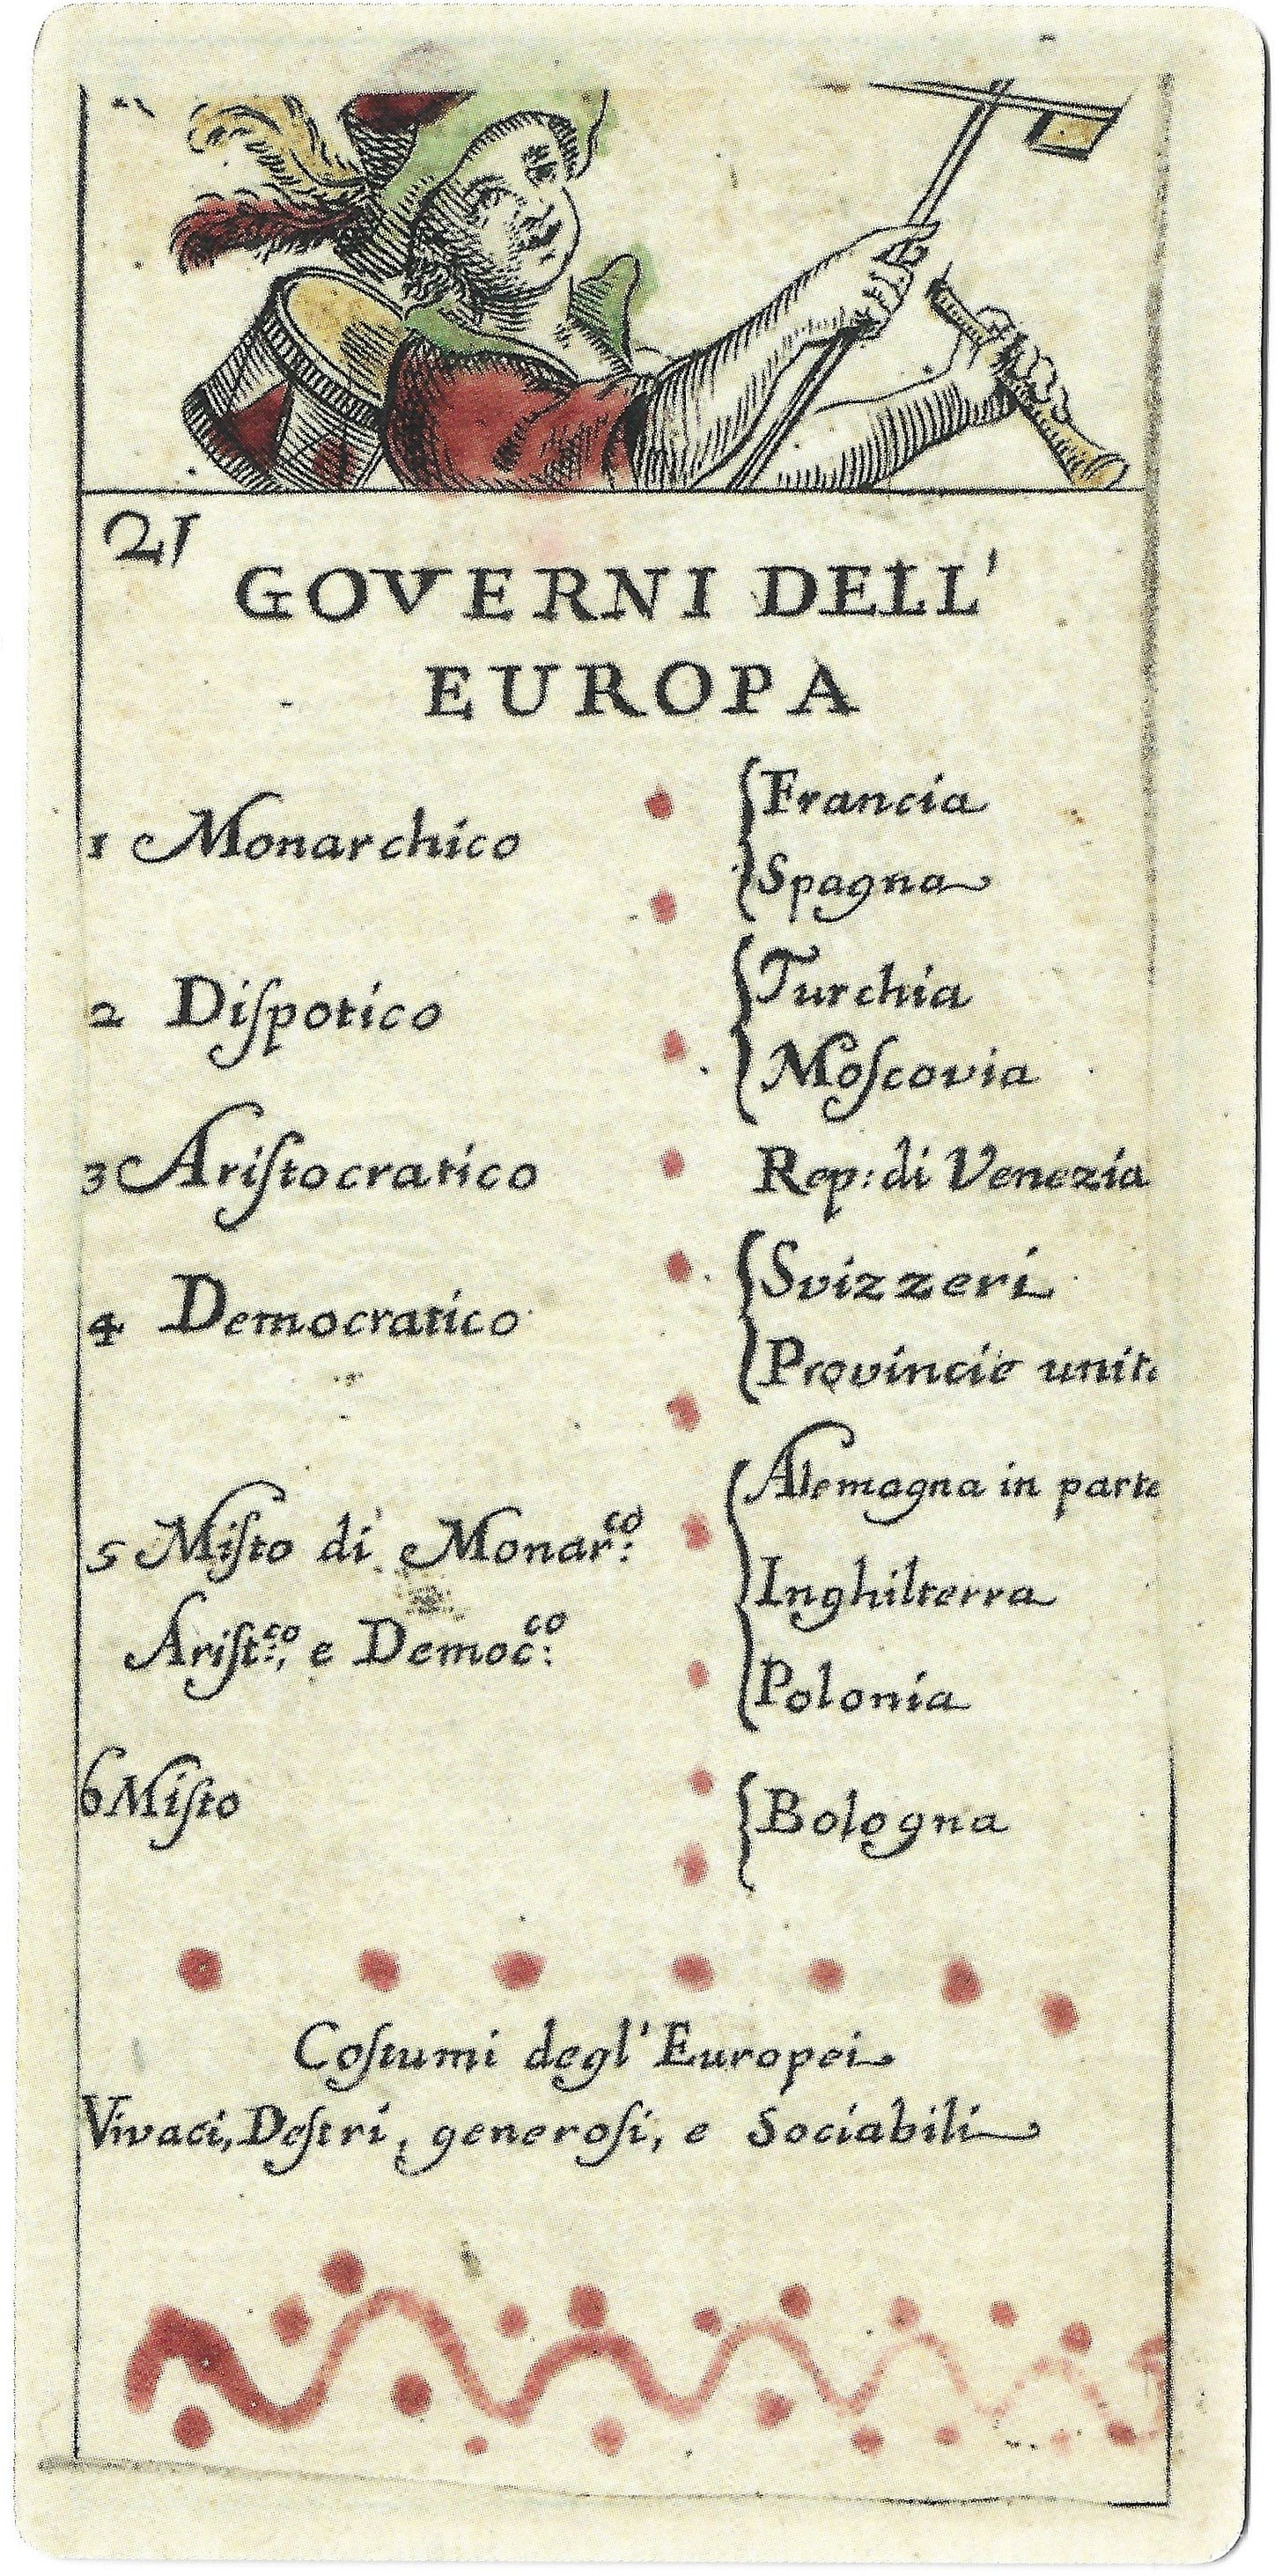 21
GOVERNI DELL'
EUROPA
1 Monarchico
Francia
Spagna
2 Diſpotico
Turchia
Moſcovia
3 Ariſtocratico
Rep: di Venezia
4 Democratico
Svizzeri
Provincie unite
5 Miſto di Monar:co
Ariſt:co, e Democ:co
Alemagna in parte
Inghilterra
Polonia
6 Miſto
Bologna
Coſtumi degl' Europei
Vivaci, Deſtri, generoſi, e Sociabili